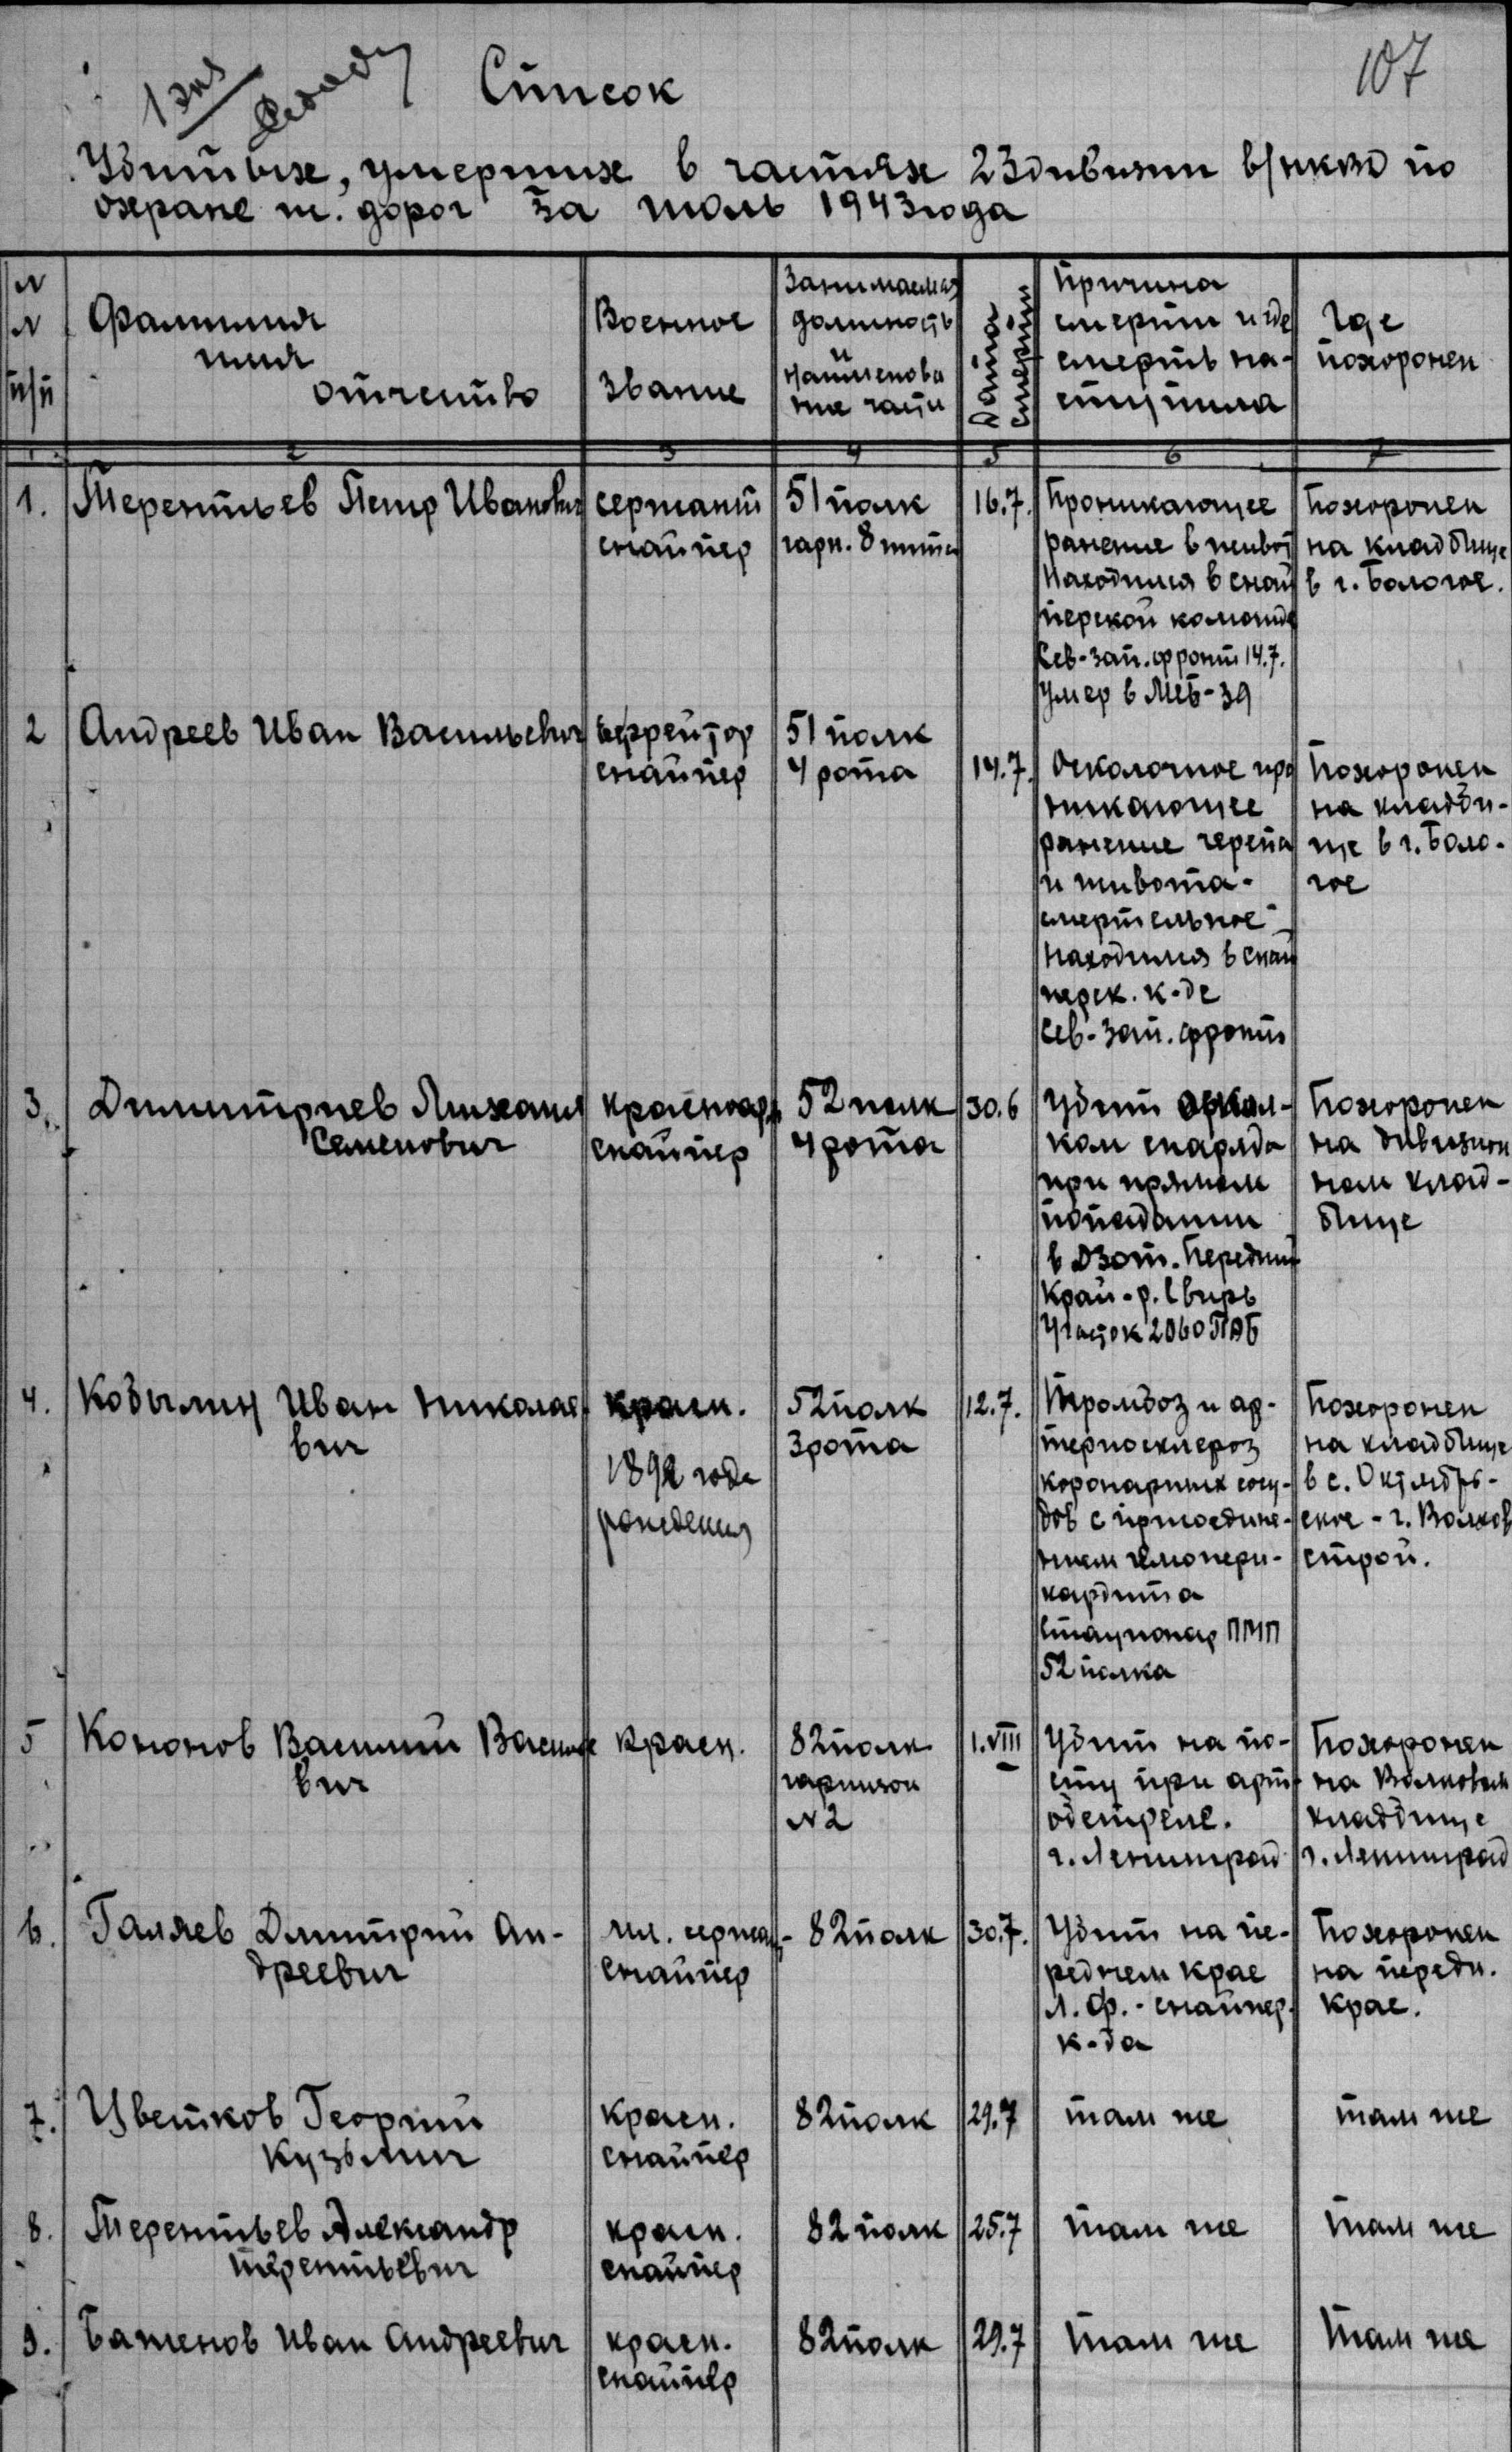 107
1 экз
Список
Убитых, умерших в частях 23 дивизии в/НКВД по
охране ж. дорог за июль 1943 года
N
N
п/п
Фамилия
имя
отчество
Военное
звание
Занимаемая
должность
и
наименова
ние части
Дата
смерти
Причина
смерти и где
смерть на-
ступила
Где
похоронен
1. 2 3 4 5 6 7
1. Терентьев Петр Иванович
сержант
снайпер
51 полк
гарн. 8 пита
16.7.
Проникающее
ранение в живот
Находился в снай
перской команде
Сев-зап. фронт 14.7.
Умер в МСБ-39
Похоронен
на кладбище
в г. Бологое.
2 Андреев Иван Васильевич
ефрейтор
снайпер
51 полк
4 рота
14.7.
Осколочное про
никающее
ранение черепа
и живота-
смертельное
Находился в снай
перск. к-де
Сев-зап. фронт
Похоронен
на кладби-
ще в г. Боло-
гое
3. Димитриев Михаил
Семенович
красноарм
снайпер
52 полк
4 рота
30.6
Убит оскол-
ком снаряда
при прямом
попадании
в дзот. Передний
край - р. Свирь
Участок 2060 ПАБ
Похоронен
на дивизион
ном клад-
бище
4. Кобылин Иван Николае
вич
красн.
1892 года
рождения
52 полк
3 рота
12.7.
Тромбоз и ар-
териосклероз
коронарных сосу-
дов с присоедине-
нием гемопери-
кардита
Стационар ПМП
52 полка
Похоронен
на кладбище
в с. Октябрь-
ское - г. Волхов
строй.
5 Кононов Василий Василье
вич
красн.
82 полк
гарнизон
N 2
1.VIII
Убит на по-
сту при арт-
обстреле.
г. Ленинград
Похоронен
на Волковом
кладбище
г. Ленинград
6. Галяев Дмитрий Ан-
дреевич
мл. сержант-
снайпер
82 полк
30.7.
Убит на пе-
реднем крае
Л. Ф. - снайпер.
к-да
Похоронен
на передн.
крае.
7. Цветков Георгий
Кузьмич
красн.
снайпер
82 полк
29.7
там же
там же
8. Терентьев Александр
Терентьевич
красн.
снайпер
82 полк
25.7
там же
там же
9. Баженов Иван Андреевич
красн.
снайпер
82 полк
29.7
там же
там же